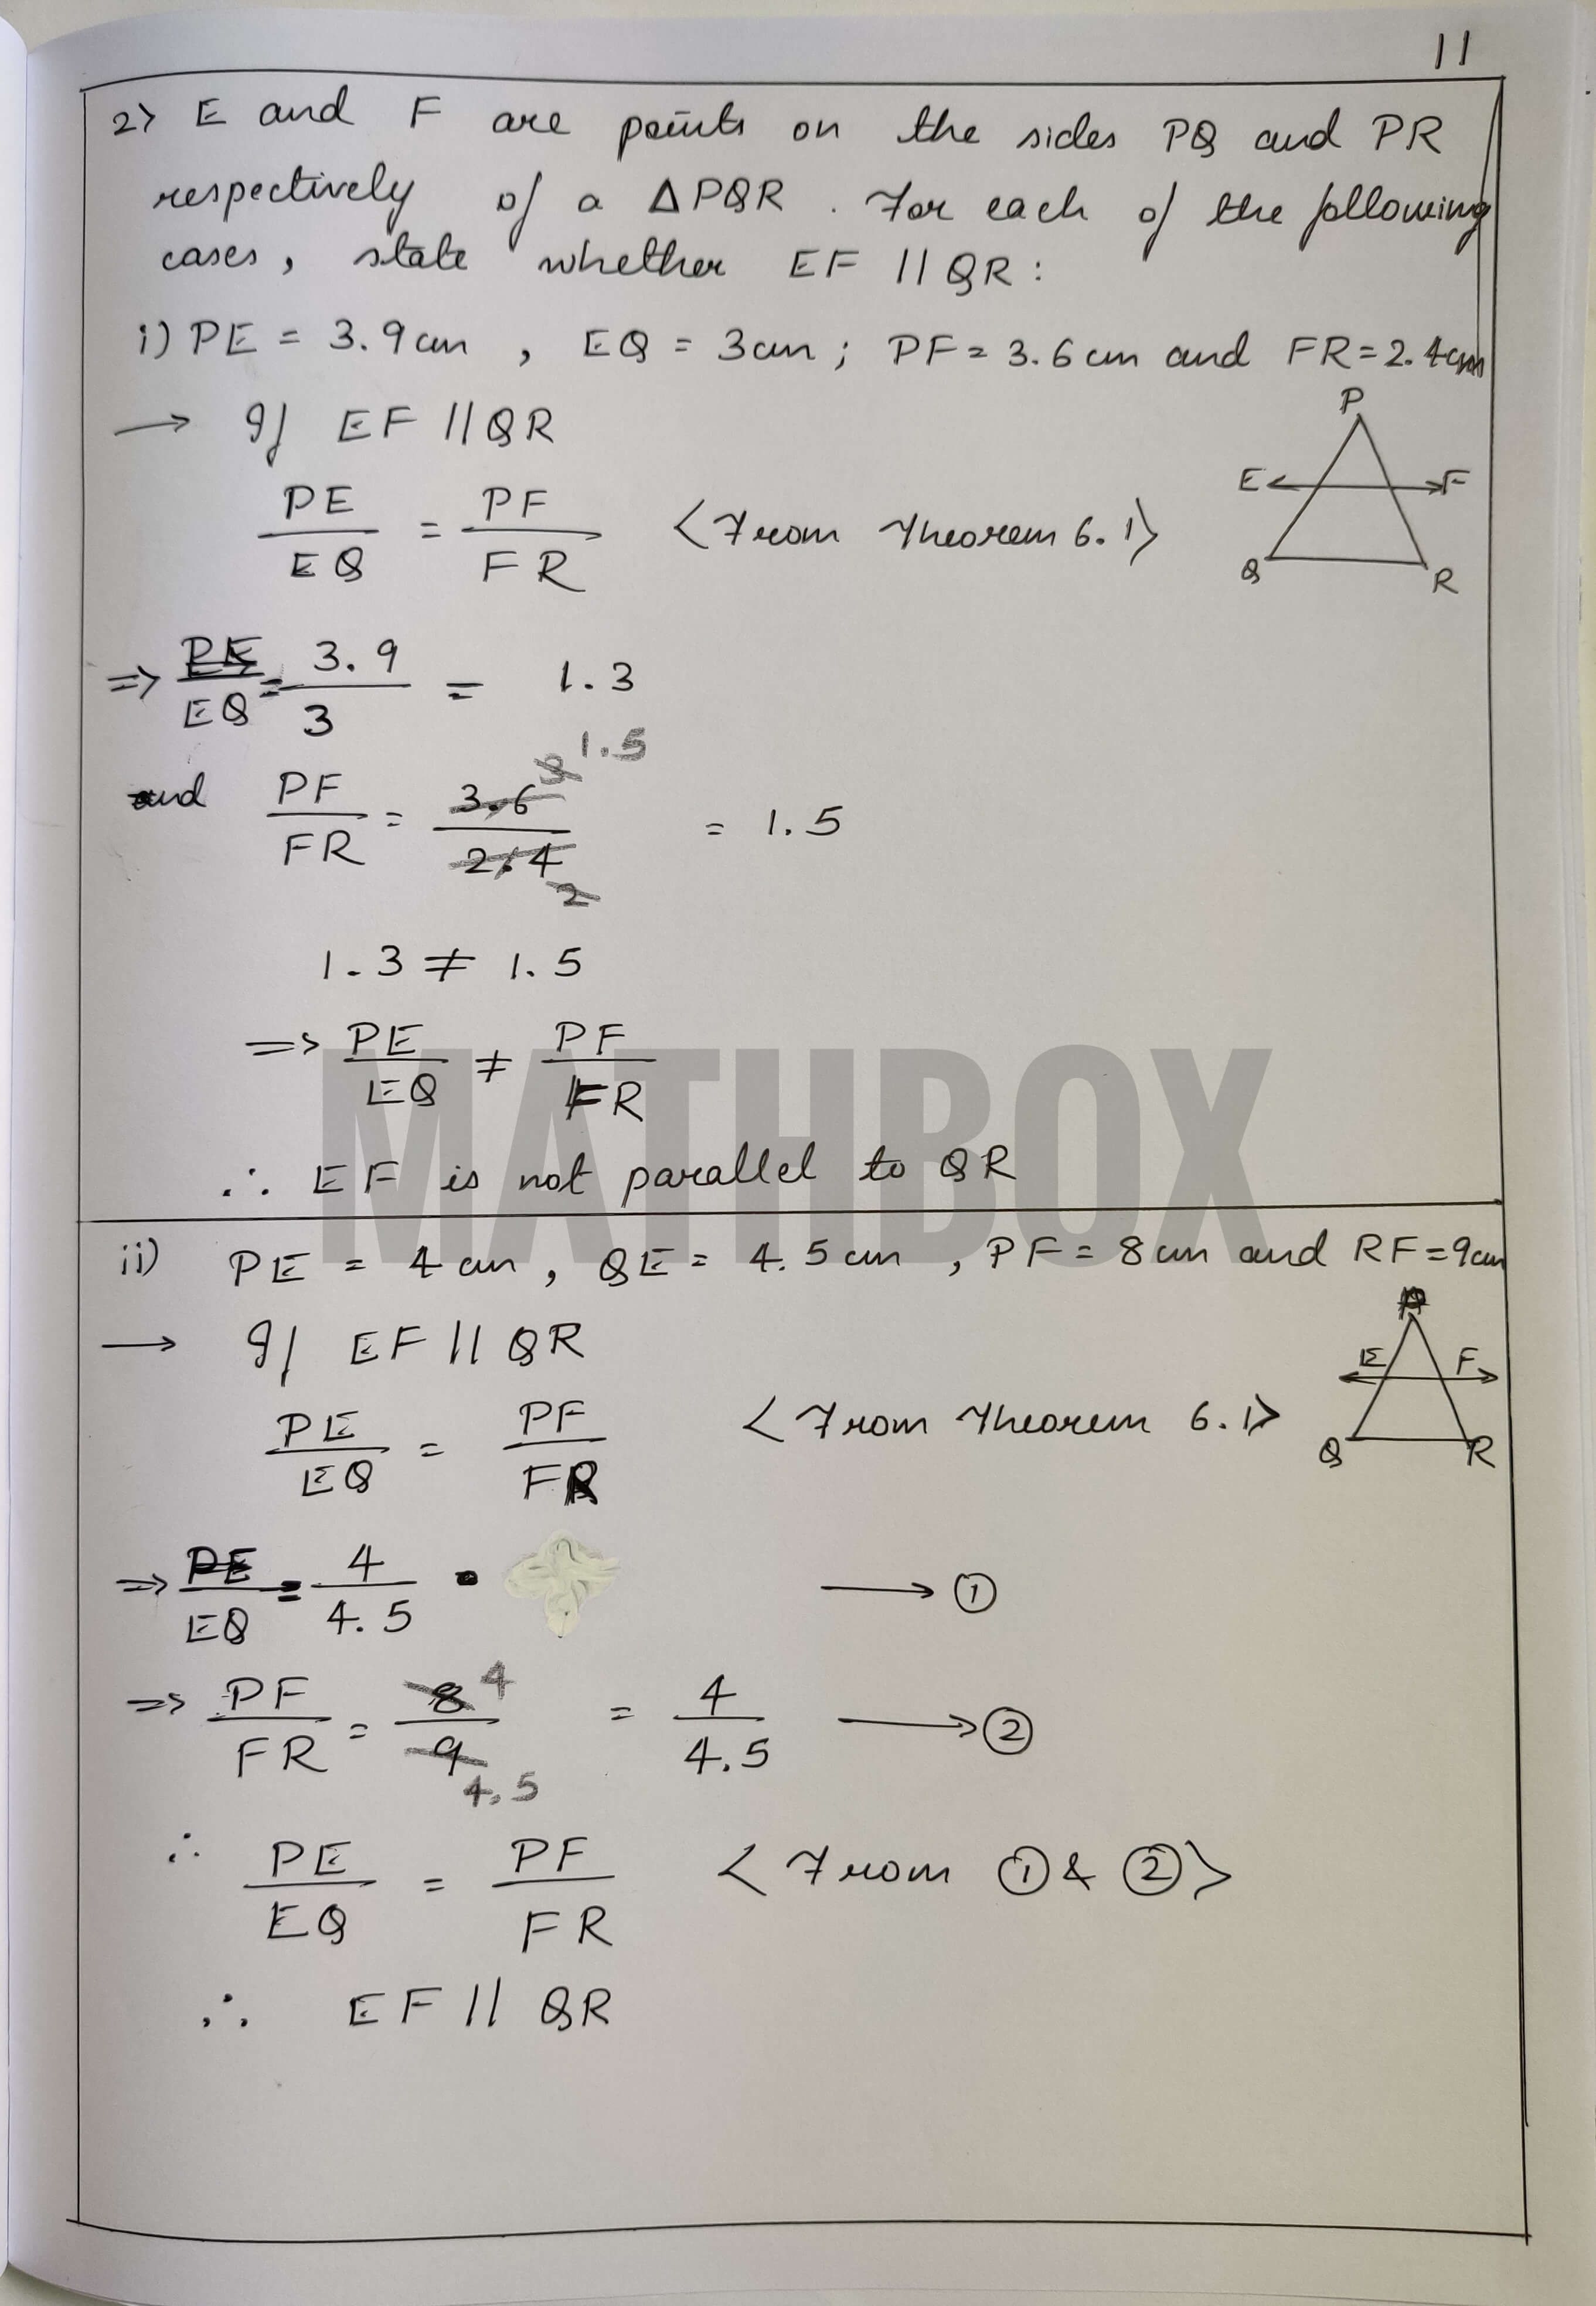 11
2> E and F are points on the sides PQ and PR
respectively of a ΔPQR. For each of the following
cases, state whether EF || QR:
i) PE = 3.9cm, EQ = 3cm; PF = 3.6cm and FR = 2.4cm
→ If EF || QR
P
E F
Q R
PE/EQ = PF/FR <From Theorem 6.1>
=> PE/EQ = 3.9/3 = 1.3
1.5
3
and PF/FR = 3.6/2.4 = 1.5
2
1.3 ≠ 1.5
=> PE/EQ ≠ PF/FR
MATHBOX
∴ EF is not parallel to QR
ii) PE = 4cm, QE = 4.5cm, PF = 8cm and RF = 9cm
→ If EF || QR
E F
Q R
PE/EQ = PF/FR <From Theorem 6.1>
=> PE/EQ = 4/4.5 → ①
4
=> PF/FR = 8/9 = 4/4.5 → ②
4.5
∴ PE/EQ = PF/FR <From ① & ②>
∴ EF || QR